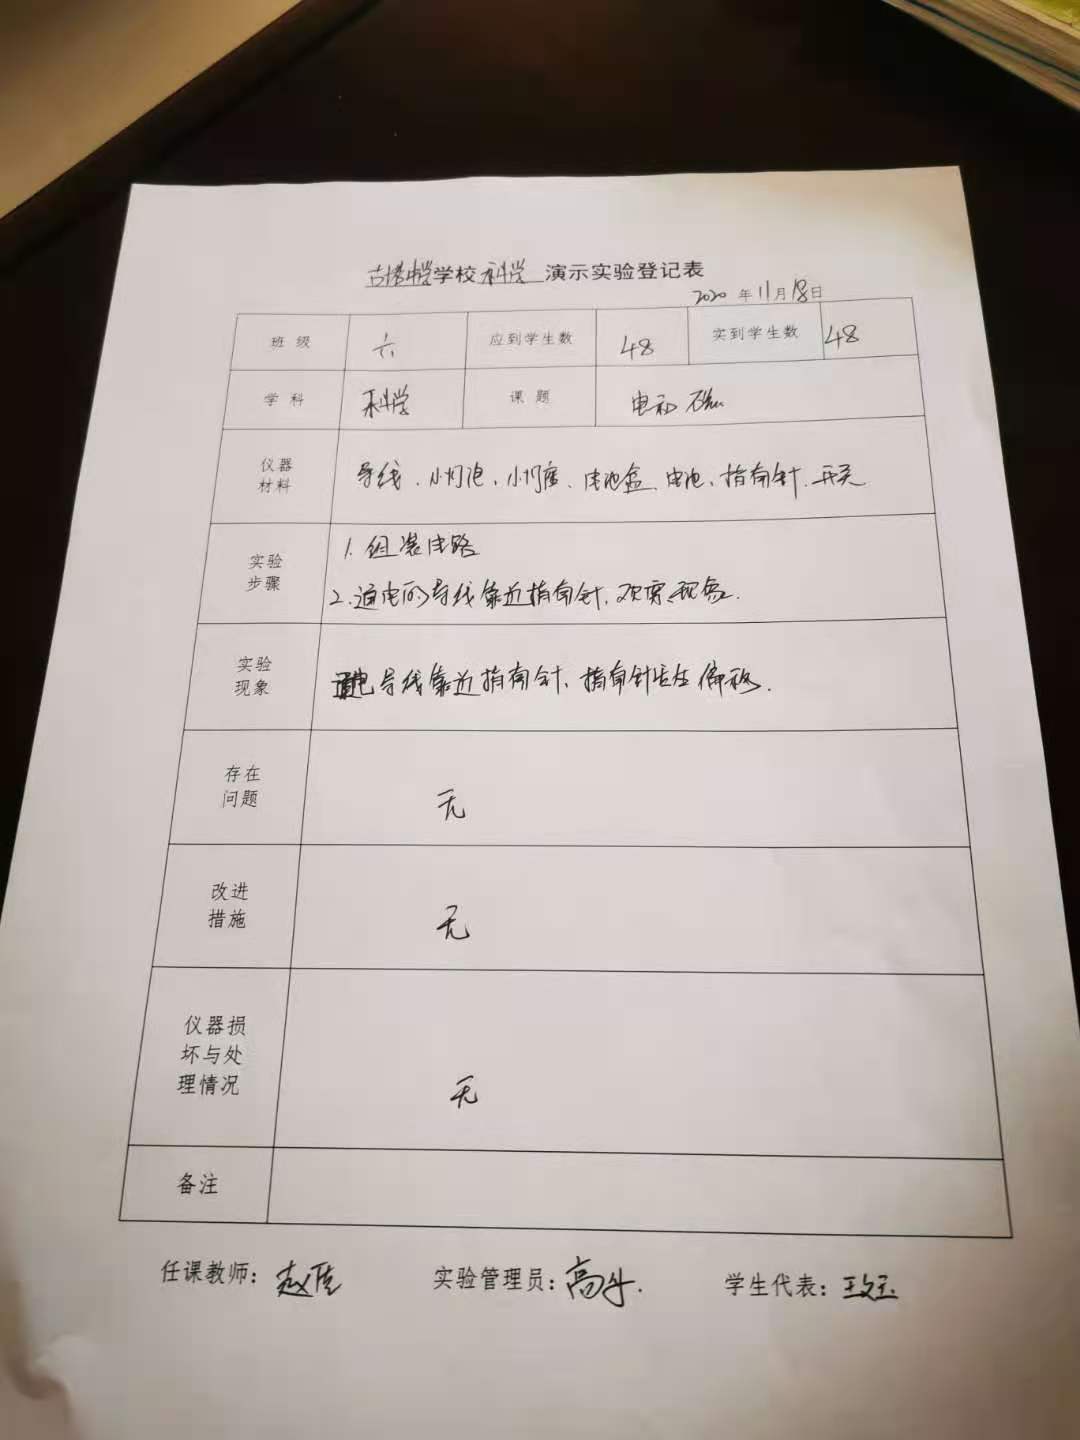 学校科学演示实验登记表
2020年11月18日
班级 六 应到学生数 48 实到学生数 48
学科 科学 课题 电和磁
仪器材料 导线、小灯泡、小灯座、电池盒、电池、指南针、开关
实验步骤 1.组装电路
2.通电的导线靠近指南针,观察现象.
实验现象 通电导线靠近指南针、指南针发生偏移.
存在问题 无
改进措施 无
仪器损坏与处理情况 无
备注
任课教师:赵佳 实验管理员:高牛. 学生代表: